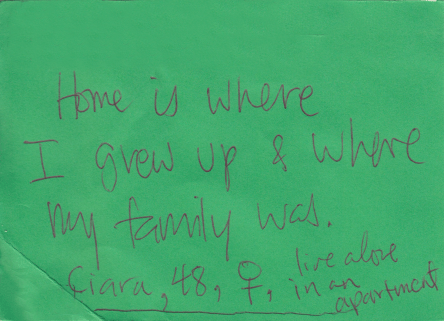 Home is where
I grew up & where
my family was.
Ciara, 48, ♀, live alone
in an
apartment